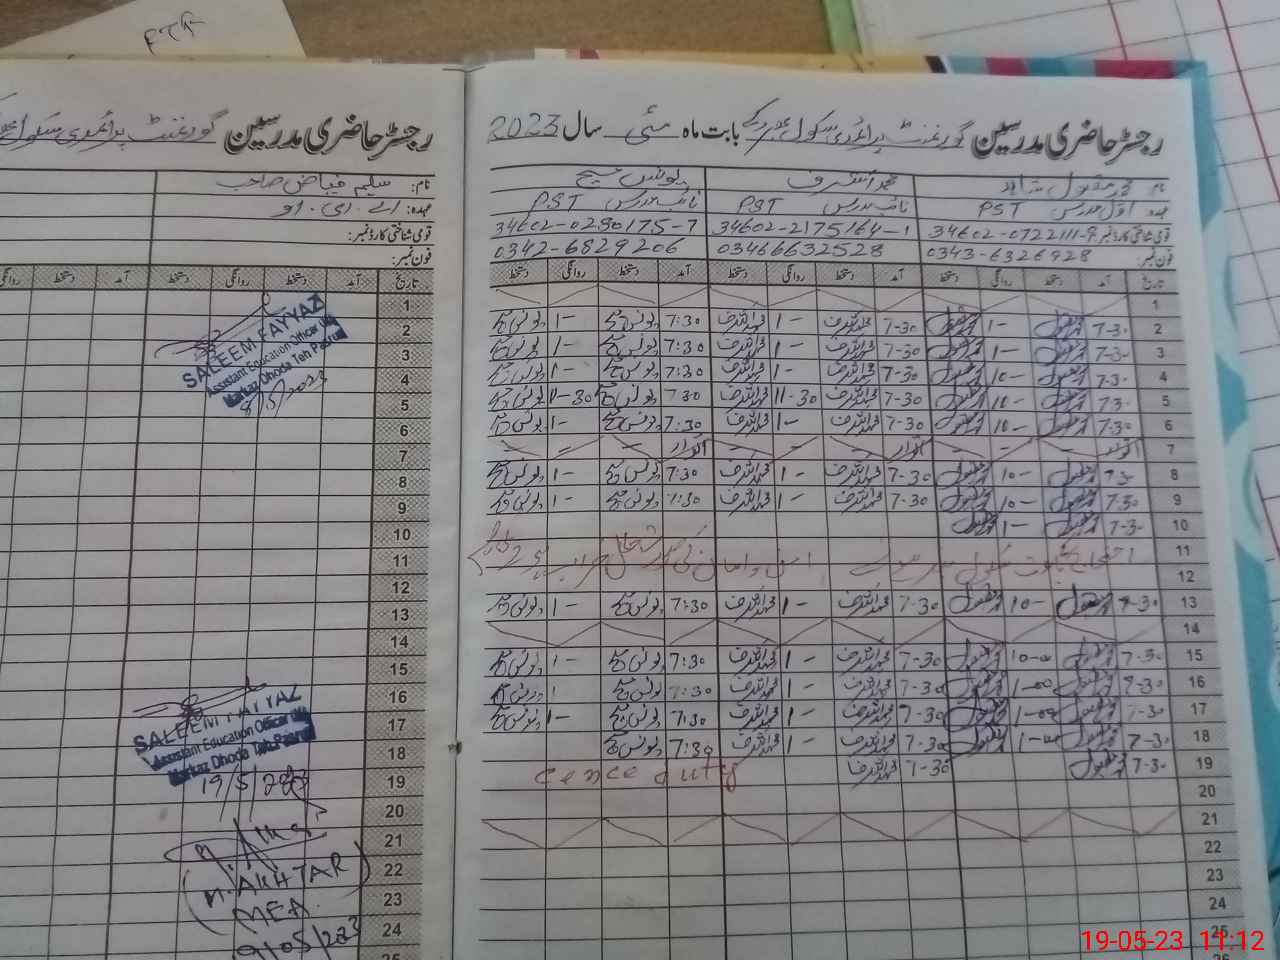 رجسٹر حاضری مدرسین گورنمنٹ پرائمری سکول بابت ماہ مئی سال 2023
نام: محمد مقبول شاہد محمد اشرف یونس مسیح
عہدہ: اول مدرس PST نائب مدرس PST نائب مدرس PST
قومی شناختی کارڈ نمبر: 34602-0722111-9 34602-2175164-1 34602-0280175-7
فون نمبر: 0343-6326928 03466632528 0342-6829206
تاریخ آمد دستخط روانگی دستخط آمد دستخط روانگی دستخط آمد دستخط روانگی دستخط
1
2 7-30 مقبول 1- مقبول 7-30 محمد اشرف 1- محمد اشرف 7:30 یونس مسیح 1- یونس مسیح
3 7-30 مقبول 1- مقبول 7-30 محمد اشرف 1- محمد اشرف 7:30 یونس مسیح 1- یونس مسیح
4 7-30 مقبول 10- مقبول 7-30 محمد اشرف 1- محمد اشرف 7:30 یونس مسیح 1- یونس مسیح
5 7-30 مقبول 10- مقبول 7-30 محمد اشرف 11-30 محمد اشرف 7:30 یونس مسیح 11-30 یونس مسیح
6 7-30 مقبول 10- مقبول 7-30 محمد اشرف 1- محمد اشرف 7:30 یونس مسیح 1- یونس مسیح
7 اتوار اتوار اتوار
8 7-30 مقبول 10- مقبول 7-30 محمد اشرف 1- محمد اشرف 7:30 یونس مسیح 1- یونس مسیح
9 7-30 مقبول 10- مقبول 7-30 محمد اشرف 1- محمد اشرف 7:30 یونس مسیح 1- یونس مسیح
10 7-30 مقبول 1- مقبول
11 سکول امن و امان کی صورتحال
12
13 7-30 مقبول 10- مقبول 7-30 محمد اشرف 1- محمد اشرف 7:30 یونس مسیح 1- یونس مسیح
14
15 7-30 مقبول 10-00 مقبول 7-30 محمد اشرف 1- محمد اشرف 7:30 یونس مسیح 1- یونس مسیح
16 7-30 مقبول 1-00 مقبول 7-30 محمد اشرف 1- محمد اشرف 7:30 یونس مسیح 1 یونس مسیح
17 7-30 مقبول 1-00 مقبول 7-30 محمد اشرف 1- محمد اشرف 7:30 یونس مسیح 1- یونس مسیح
18 7-30 مقبول 1-00 مقبول 7-30 محمد اشرف 1- محمد اشرف 7:30 یونس مسیح
19 7-30 مقبول 7-30 محمد اشرف cence duty
20
21
22
23
24
25
رجسٹر حاضری مدرسین گورنمنٹ پرائمری سکول
نام: سلیم فیاض صاحب
عہدہ: اے۔ای۔او
قومی شناختی کارڈ نمبر:
فون نمبر:
تاریخ آمد دستخط روانگی دستخط آمد دستخط روانگی
1
2
3
4
5
6
7
8
9
10
11
12
13
14
15
16
17
18
19
20
21
22
23
24
SALEEM FAYYAZ
Assistant Education Officer
Markaz Dhoda Teh Pasrur
8/5/2023
SALEEM FAYYAZ
Assistant Education Officer
Markaz Dhoda Teh Pasrur
19/5/2023
(M. AKHTAR)
MEA
19/05/2023
19-05-23 11:12